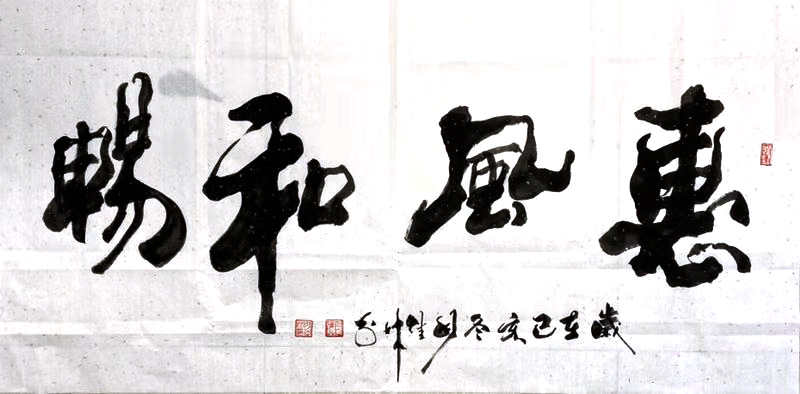 惠風和暢
歲在己亥冬